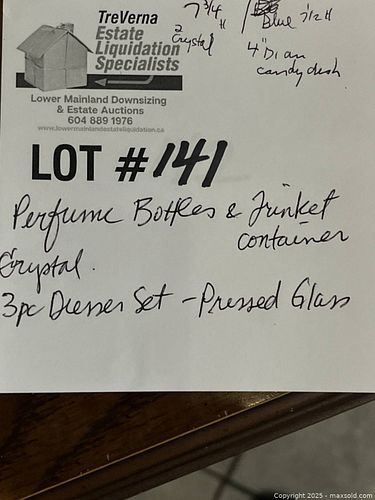 TreVerna
Estate
Liquidation
Specialists
Lower Mainland Downsizing
& Estate Auctions
604 889 1976
www.lowermainlandestateliquidation.ca
7 3/4 H
2 Crystal
1 Blue 7 1/2 H
4" Diam
candy dish
LOT #141
Perfume Bottles & Trinket
container
Crystal.
3pc Dresser Set - Pressed Glass
Copyright 2025 - maxsold.com